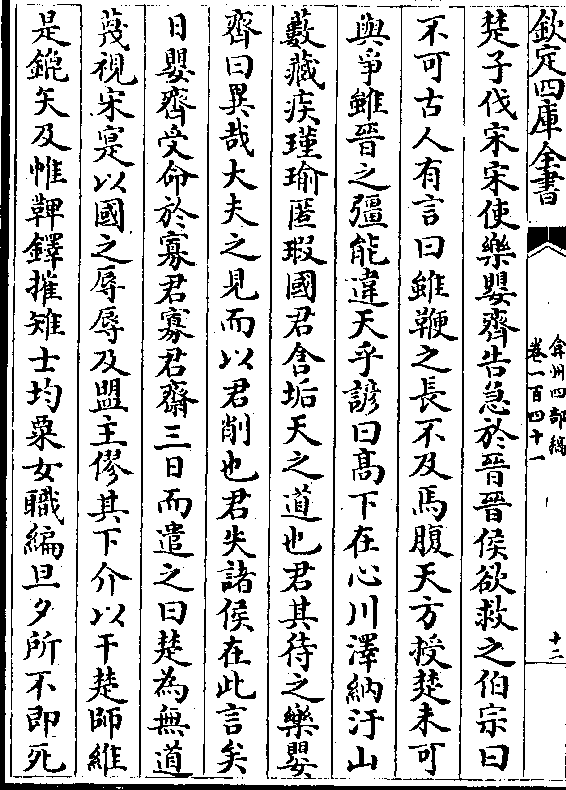 欽定四庫全書
弇州四部稿
卷一百四十一
十二
楚子伐宋宋使樂嬰齊告急於晉晉侯欲救之伯宗曰
不可古人有言曰雖鞭之長不及馬腹天方授楚未可
與爭雖晉之彊能違天乎諺曰髙下在心川澤納汙山
藪藏疾瑾瑜匿瑕國君含垢天之道也君其待之樂嬰
齊曰異哉大夫之見而以君削也君失諸侯在此言矣
日嬰齊受命於寡君寡君齋三日而遣之曰楚為無道
蔑視宋寔以國之辱辱及盟主僇其下介以干楚師維
是鋭矢及帷鞞鐸摧雉士均粟女職編旦夕所不即死